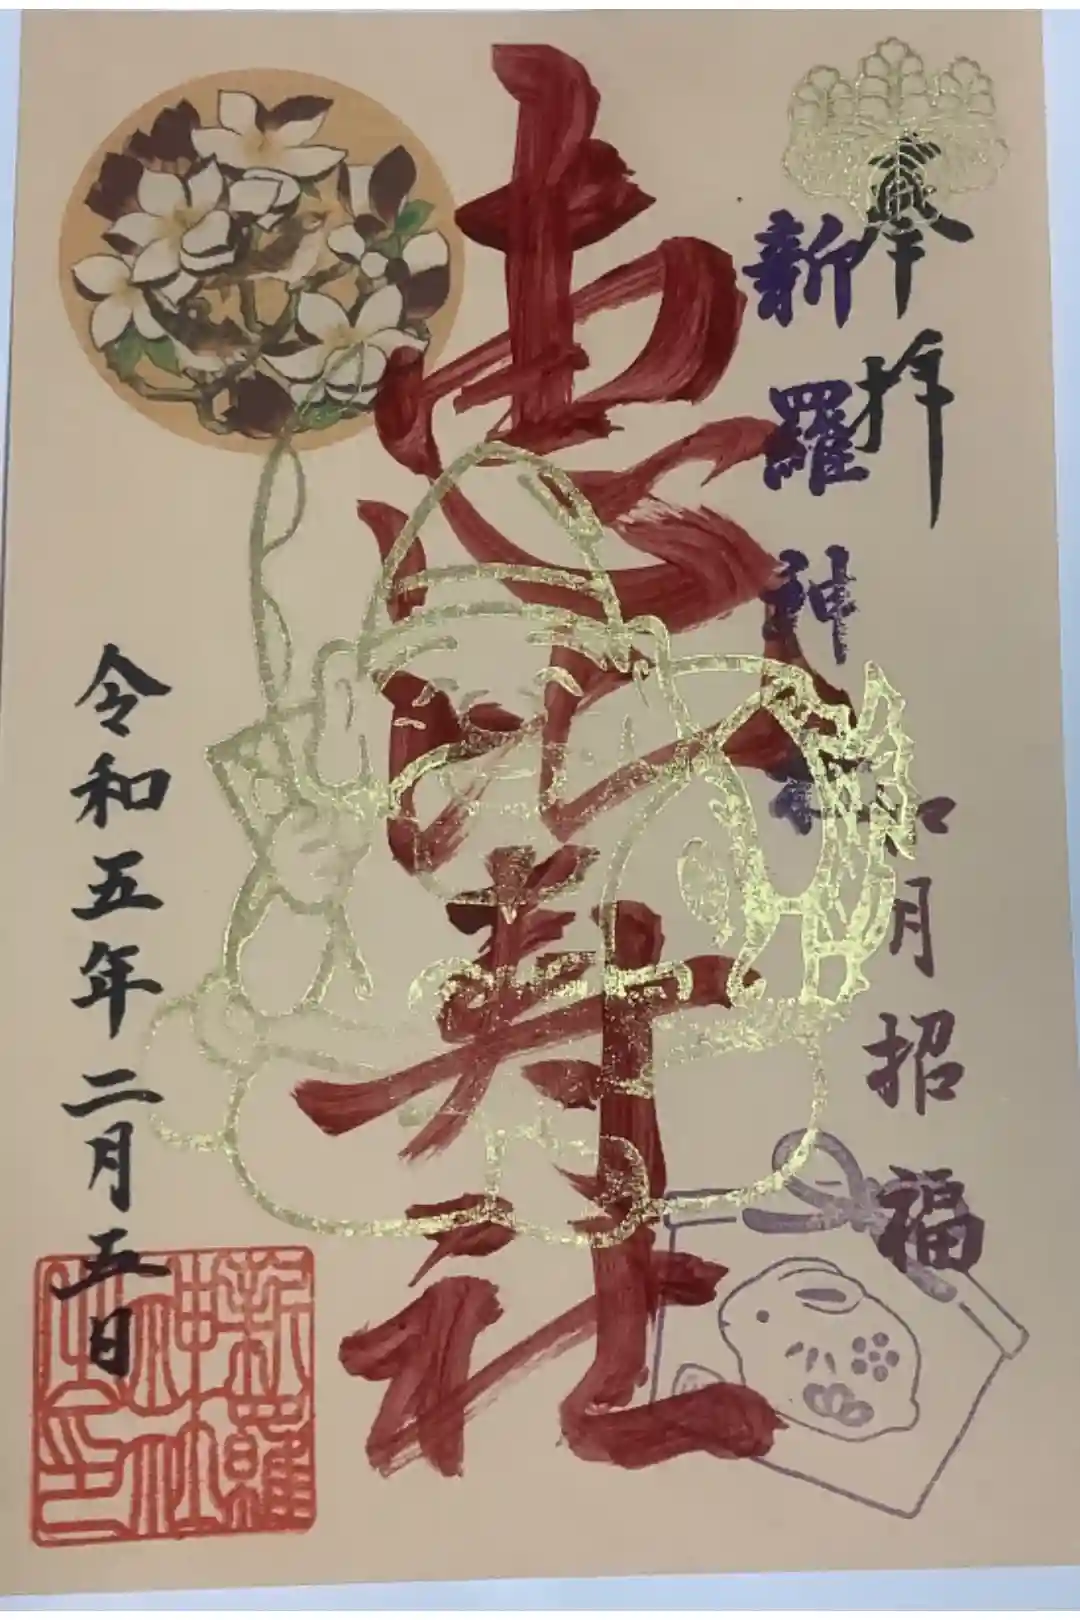 奉拝
新羅神社
如月招福
恵比寿社
令和五年二月五日
新羅
神社